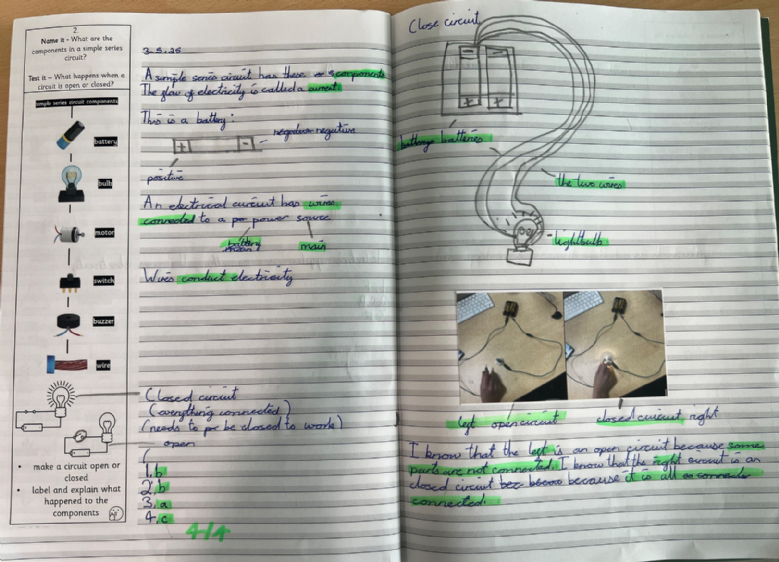 2.
Name it - What are the
components in a simple series
circuit?
Test it - What happens when a
circuit is open or closed?
simple series circuit components
battery
bulb
motor
switch
buzzer
wire
• make a circuit open or
closed
• label and explain what
happened to the
components
A simple series circuit has these components
The flow of electricity is called a current.
This is a battery:
+ -
negative
positive
An electrical circuit has wires
connected to a power source
battery main
Wires conduct electricity
Closed circuit
(everything connected)
(needs to be closed to work)
open
1. b
2. b
3. a
4. c
4/4
Close circuit
- -
+ +
batteries
the two wires
lightbulb
left open circuit closed circuit right
I know that the left is an open circuit because some
parts are not connected. I know that the right circuit is an
closed circuit because it is all
connected.